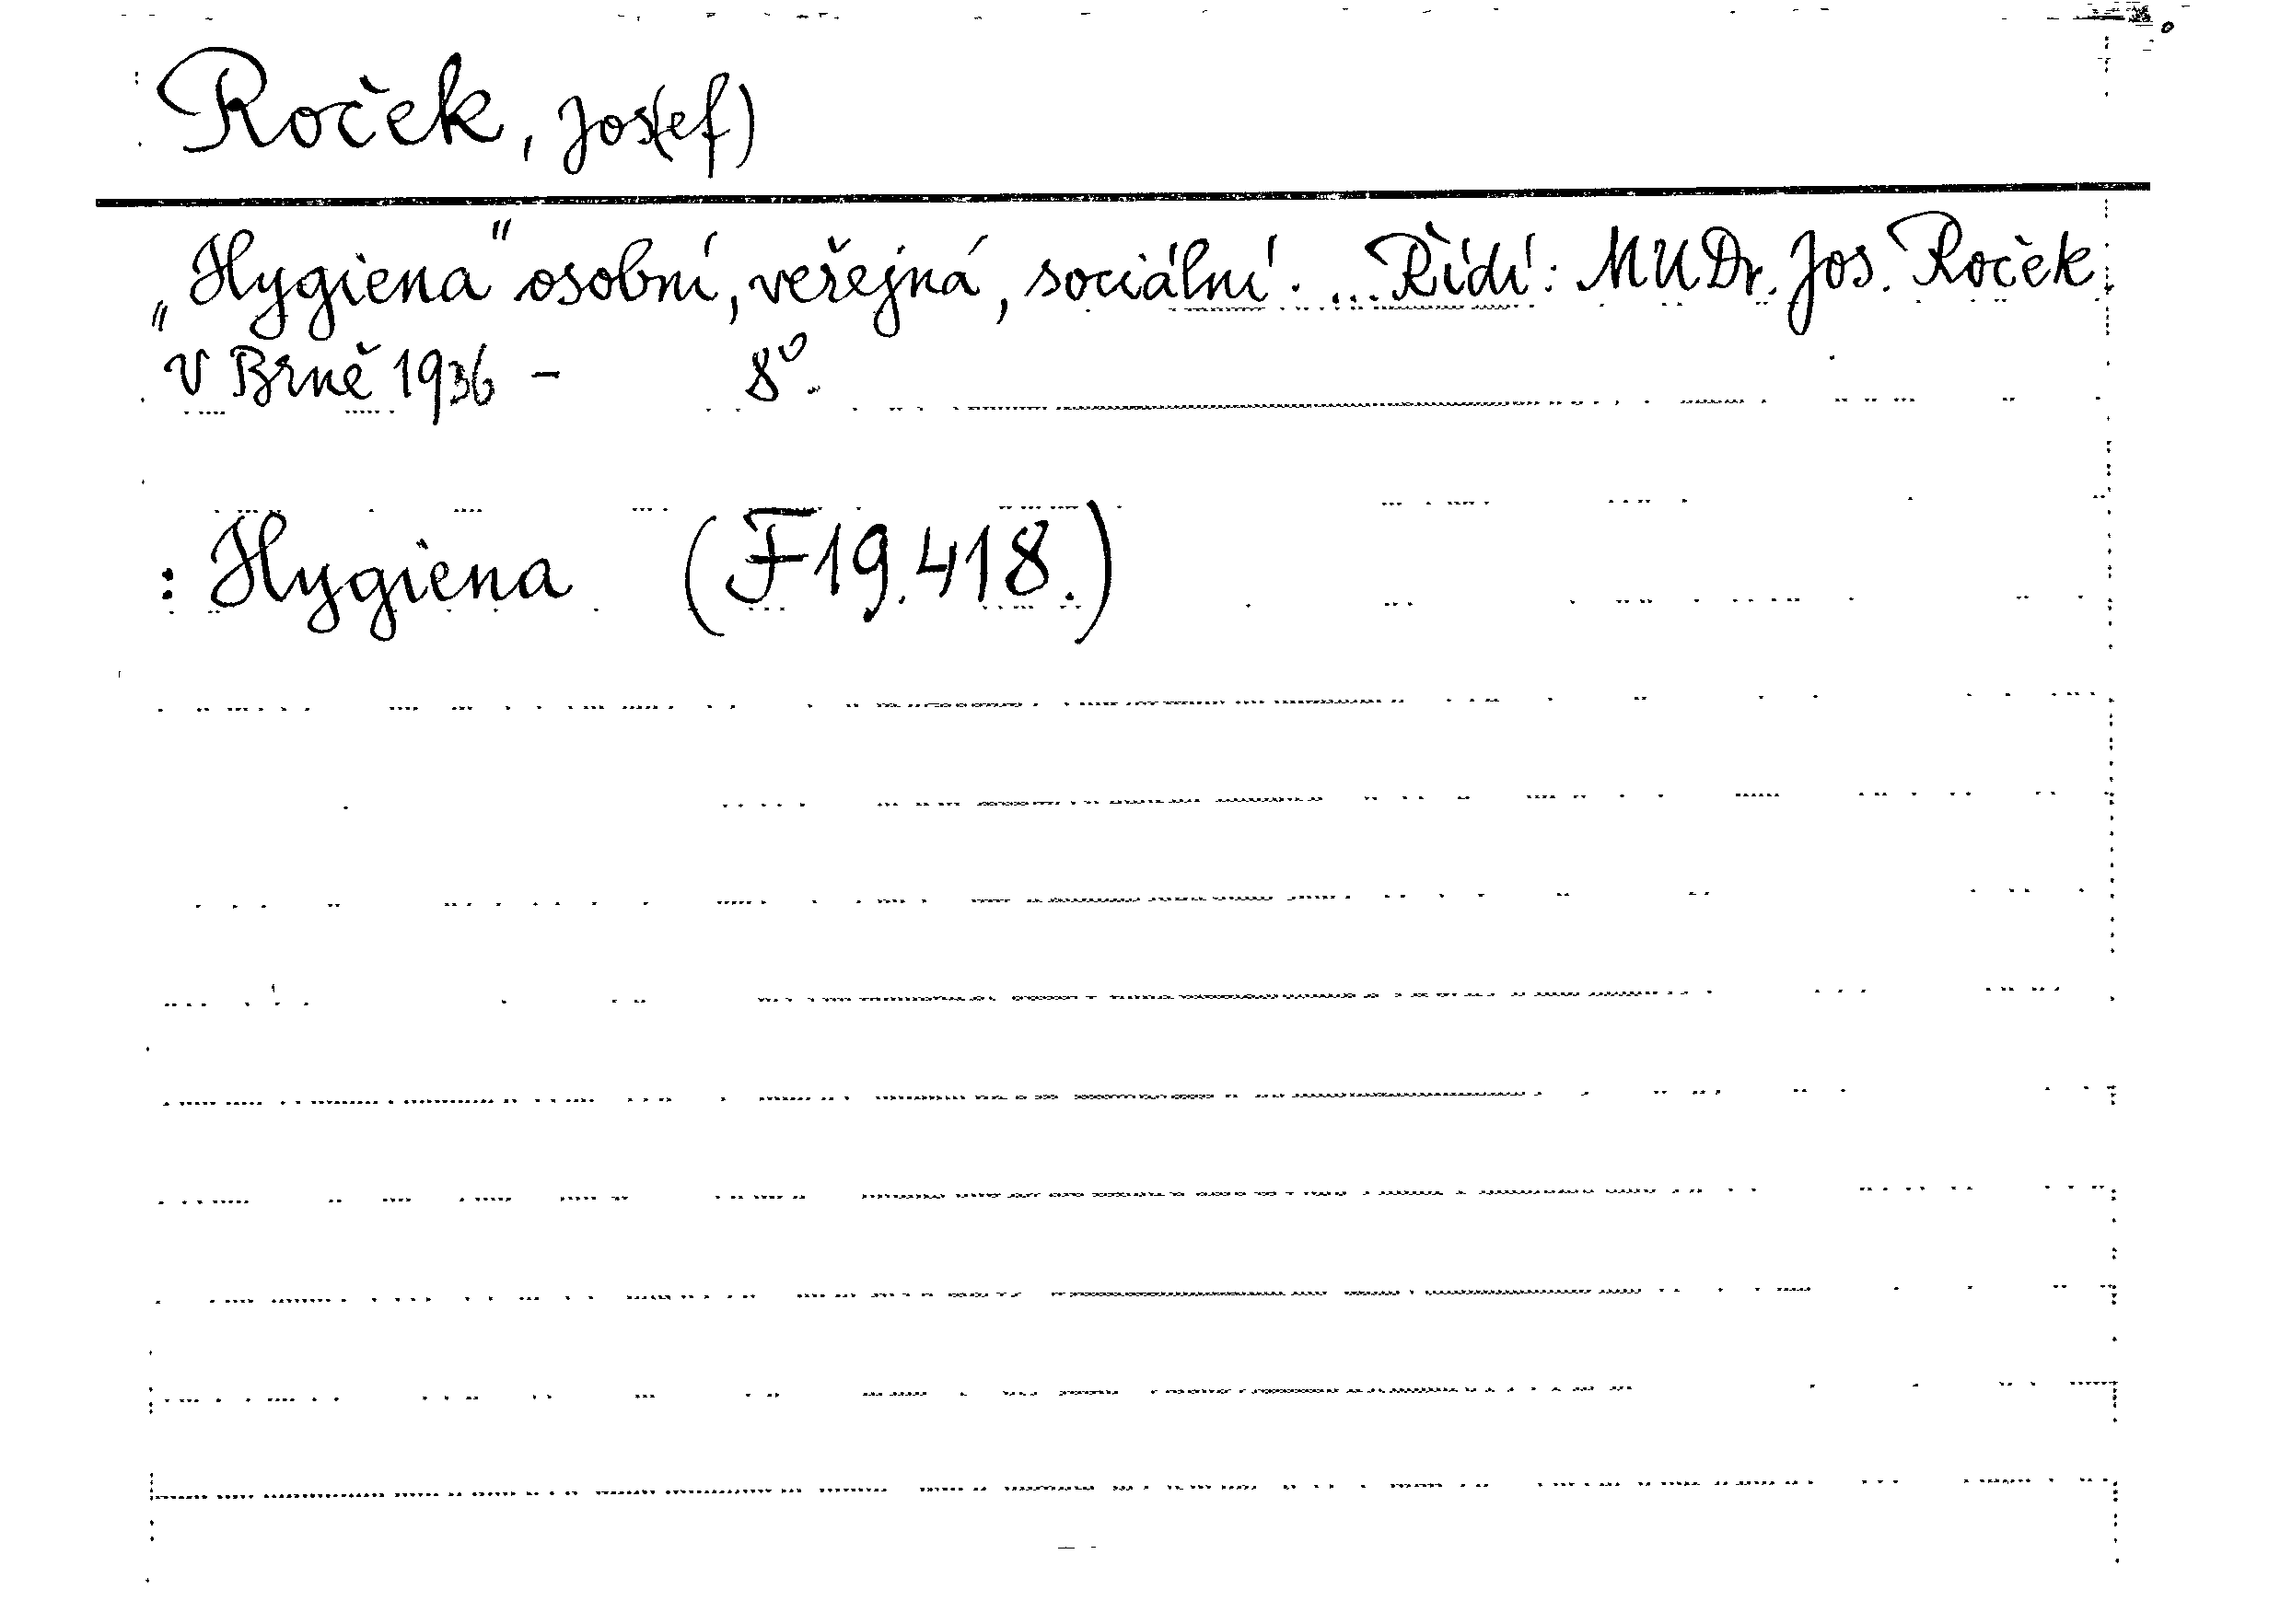 Roček, Jos(ef)
„Hygiena" osobní, veřejná, sociální. ... Řídí: MUDr. Jos. Roček.
V Brně 1936 - 8°.
: Hygiena (F19.418.)